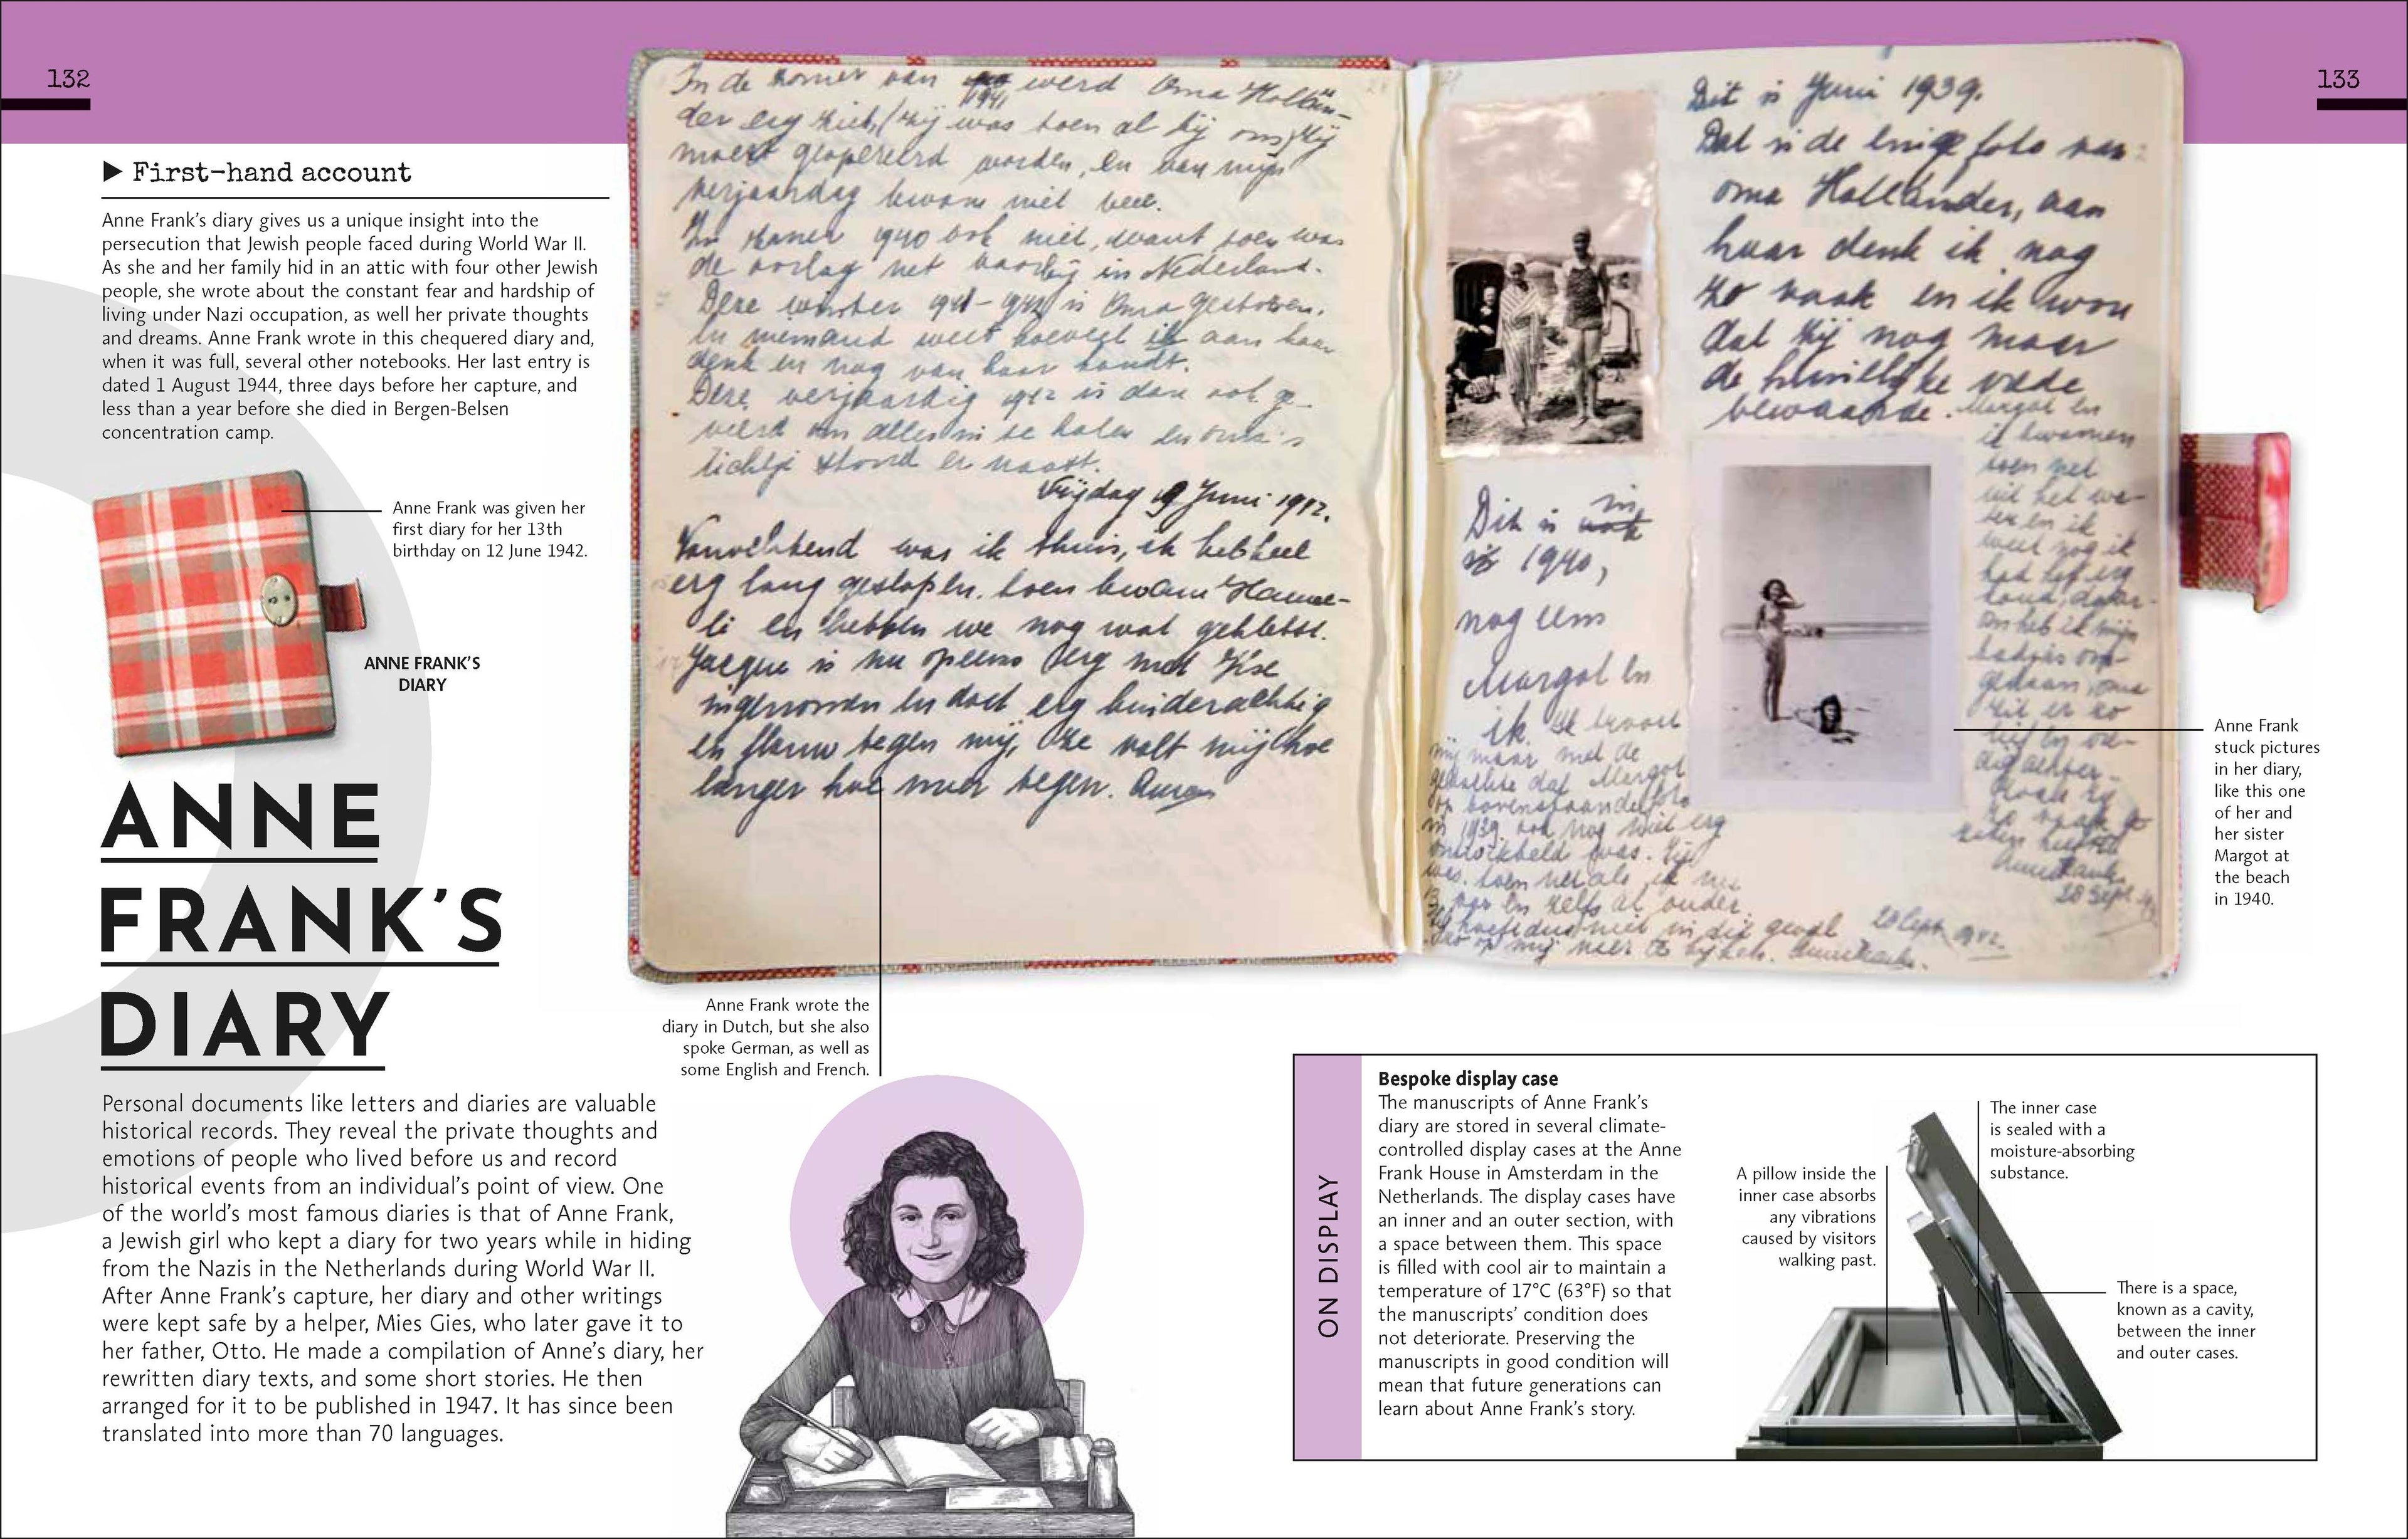 132
133
▶ First-hand account
Anne Frank's diary gives us a unique insight into the
persecution that Jewish people faced during World War II.
As she and her family hid in an attic with four other Jewish
people, she wrote about the constant fear and hardship of
living under Nazi occupation, as well her private thoughts
and dreams. Anne Frank wrote in this chequered diary and,
when it was full, several other notebooks. Her last entry is
dated 1 August 1944, three days before her capture, and
less than a year before she died in Bergen-Belsen
concentration camp.
Anne Frank was given her
first diary for her 13th
birthday on 12 June 1942.
ANNE FRANK'S
DIARY
ANNE
FRANK'S
DIARY
Personal documents like letters and diaries are valuable
historical records. They reveal the private thoughts and
emotions of people who lived before us and record
historical events from an individual's point of view. One
of the world's most famous diaries is that of Anne Frank,
a Jewish girl who kept a diary for two years while in hiding
from the Nazis in the Netherlands during World War II.
After Anne Frank's capture, her diary and other writings
were kept safe by a helper, Mies Gies, who later gave it to
her father, Otto. He made a compilation of Anne's diary, her
rewritten diary texts, and some short stories. He then
arranged for it to be published in 1947. It has since been
translated into more than 70 languages.
In de zomer van 1941 werd Oma Hollän-
der erg ziek, (zij was toen al bij ons) zij
moest geopereerd worden, en van mijn
verjaardag kwam niet veel.
In zomer 1940 ook niet, want toen was
de oorlog net voorbij in Nederland.
Deze winter 1941-1942 is Oma gestorven.
En niemand weet hoeveel ik aan haar
denk en nog van haar houdt.
Deze verjaardag 1942 is dan ook ge-
vierd om alles in te halen en oma's
lichtje stond er naast.
Vrijdag 19 Juni 1942.
Vanochtend was ik thuis, ik heb heel
erg lang geslapen, toen kwam Hanne-
li en hebben we nog wat gekletst.
Jacque is nu opeens erg met Ilse
ingenomen en doet erg kinderachtig
en flauw tegen mij, ze valt mij hoe
langer hoe meer tegen. Anne
Dit is Juni 1939.
Dat is de enige foto van
oma Holländer, aan
haar denk ik nog
zo vaak en ik wou
dat zij nog maar
de huiselijke vrede
bewaarde. Margot en
ik kwamen
toen net
uit het wa-
ter en ik
weet nog ik
had het erg
koud, daar-
om heb ik mijn
badjas om-
gedaan, oma
zit er zo
Dit is in
1940,
nog eens
Margot en
ik. Ik troost
mij maar met de
gedachte dat Margot
op bovenstaande foto
in 1939 ook nog niet erg
ontwikkeld was. Zij
was toen net als ik nu
13 jaar en zelfs al ouder.
28 Sept. 1942.
Anne Frank.
Anne Frank
28 Sept.
Anne Frank wrote the
diary in Dutch, but she also
spoke German, as well as
some English and French.
Anne Frank
stuck pictures
in her diary,
like this one
of her and
her sister
Margot at
the beach
in 1940.
ON DISPLAY
Bespoke display case
The manuscripts of Anne Frank's
diary are stored in several climate-
controlled display cases at the Anne
Frank House in Amsterdam in the
Netherlands. The display cases have
an inner and an outer section, with
a space between them. This space
is filled with cool air to maintain a
temperature of 17°C (63°F) so that
the manuscripts' condition does
not deteriorate. Preserving the
manuscripts in good condition will
mean that future generations can
learn about Anne Frank's story.
A pillow inside the
inner case absorbs
any vibrations
caused by visitors
walking past.
The inner case
is sealed with a
moisture-absorbing
substance.
There is a space,
known as a cavity,
between the inner
and outer cases.